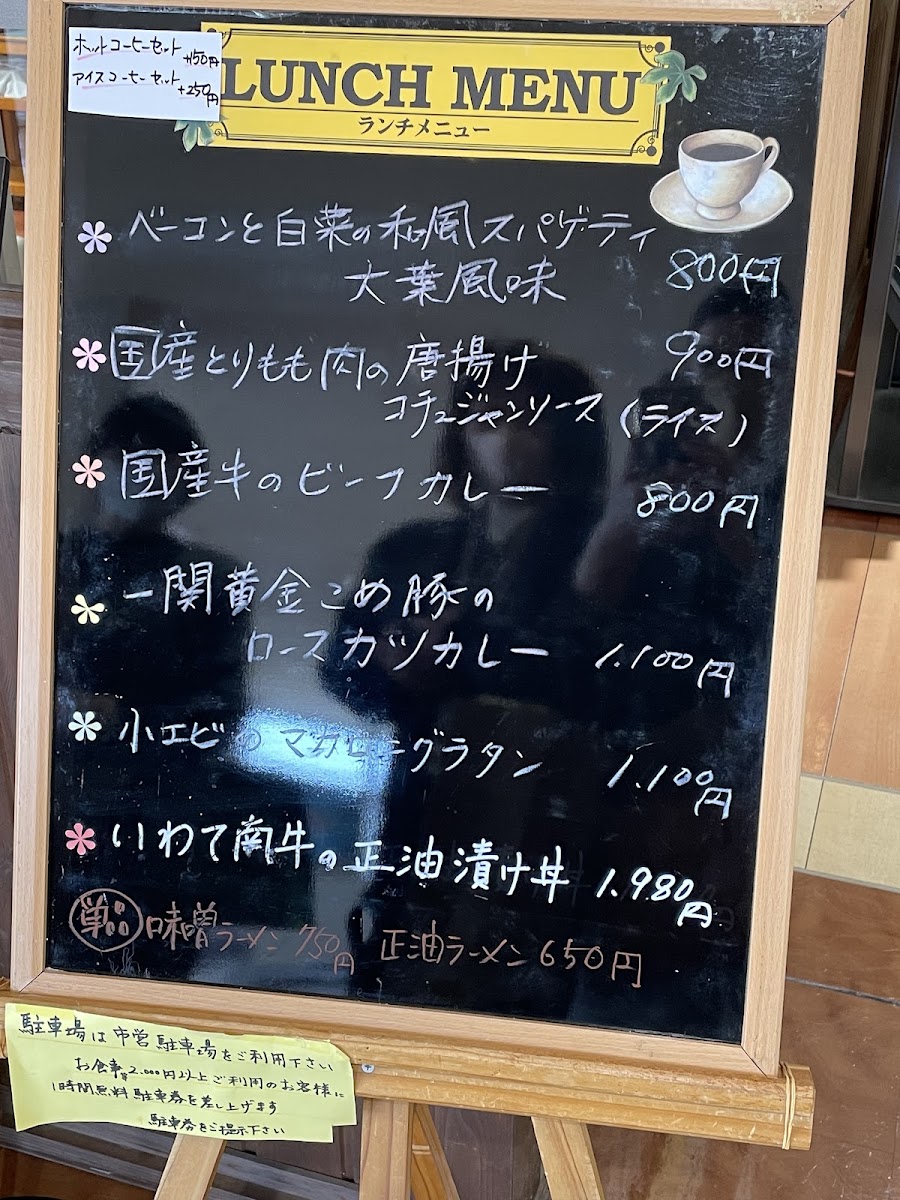 ホットコーヒーセット +150円
アイスコーヒーセット +250円
LUNCH MENU
ランチメニュー
ベーコンと白菜の和風スパゲティ
大葉風味 800円
国産とりもも肉の唐揚げ 900円
コチュジャンソース (ライス)
国産牛のビーフカレー 800円
一関黄金こめ豚の
ロースカツカレー 1.100円
小エビのマカロニグラタン 1.100円
いわて南牛の正油漬け丼 1.980円
単品 味噌ラーメン 750円 正油ラーメン 650円
駐車場は市営駐車場をご利用下さい
お食事¥2.000円以上ご利用のお客様に
1時間無料駐車券を差し上げます
駐車券をご提示下さい